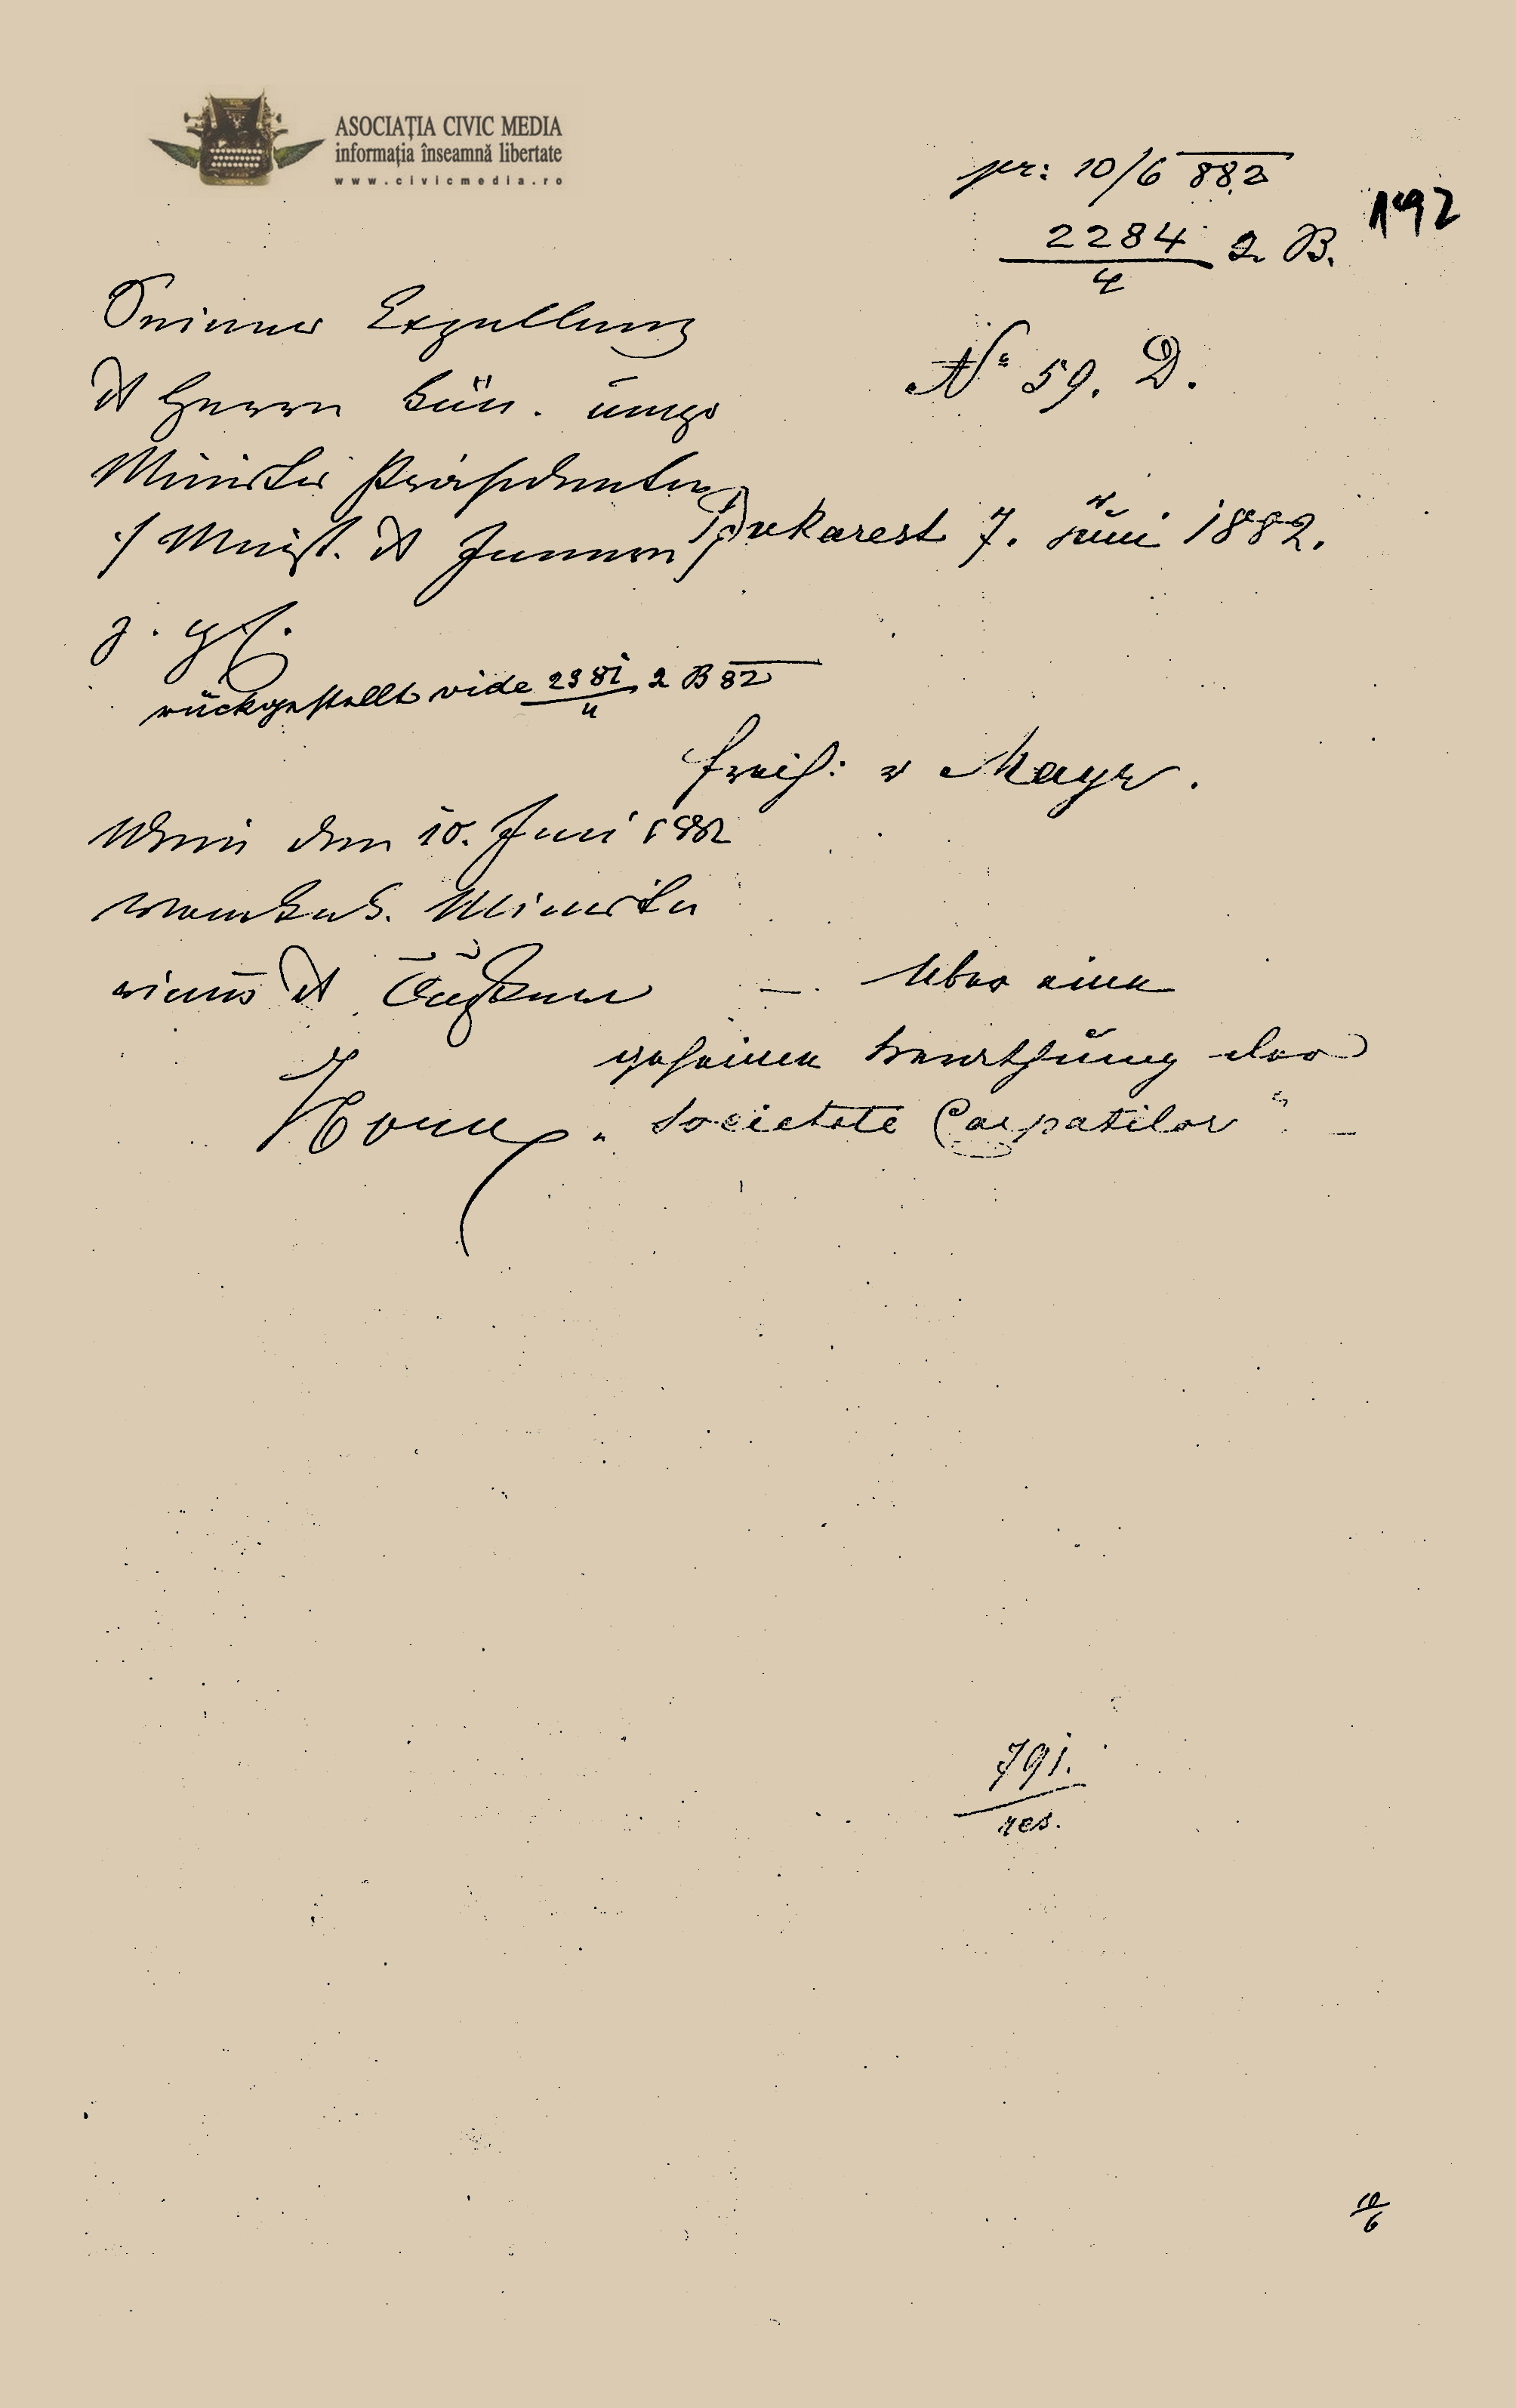 ASOCIAȚIA CIVIC MEDIA
informația înseamnă libertate
www.civicmedia.ro
pr: 10/6 882
2284 2 B.
4
192
Seiner Exzellenz
d Herrn kön. ung.
Minister Präsidenten
/ Minist. d Innern /
z. gf.
rückgestellt vide 2381 2 B 82
4
Nº 59. D.
Bukarest 7. Juni 1882.
Freih: v Mayr.
Wien den 10. Juni 1882
Vom k. u. k. Ministe
rium d Äußern
Über eine
geheime Berathung der
"Societate Carpatilor" –
791.
res.
10
6